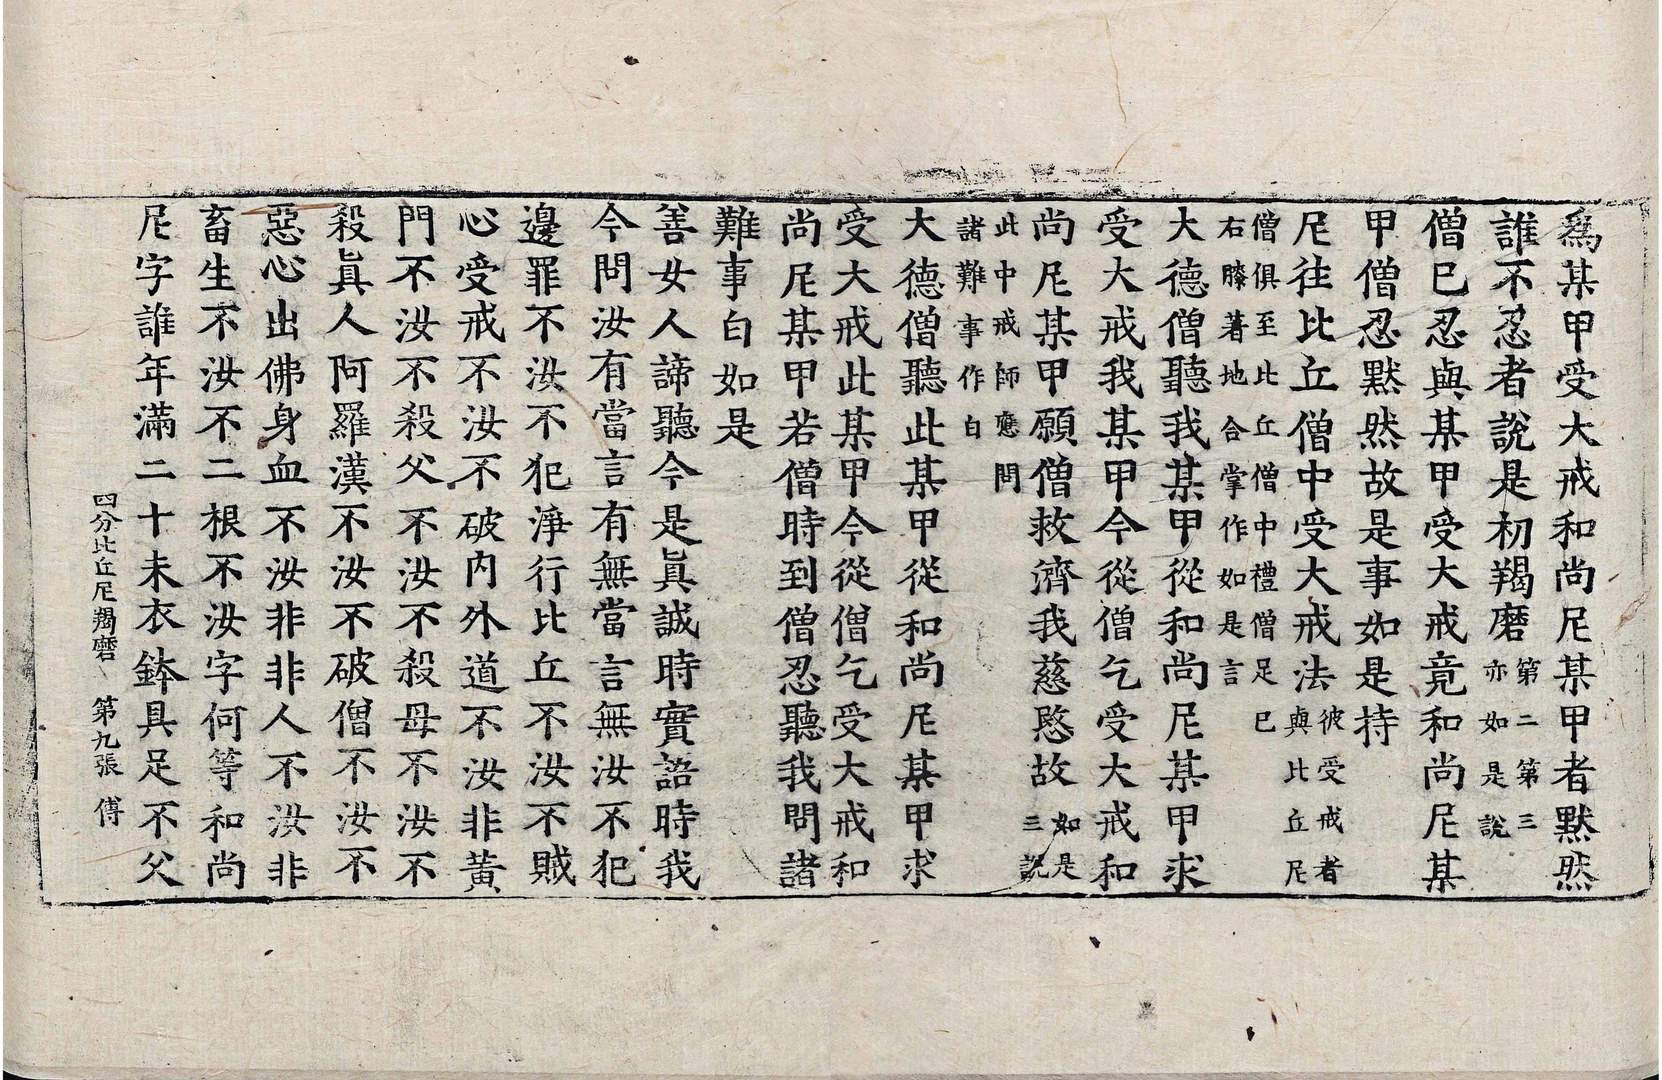 爲某甲受大戒和尚尼某甲者黙然
誰不忍者說是初羯磨第二第三
亦如是說
僧已忍與某甲受大戒竟和尚尼某
甲僧忍黙然故是事如是持
尼往比丘僧中受大戒法彼受戒者
與比丘尼
僧俱至比丘僧中禮僧足已
右膝著地合掌作如是言
大德僧聽我某甲從和尚尼某甲求
受大戒我某甲今從僧乞受大戒和
尚尼某甲願僧救濟我慈愍故如是
三說
此中戒師應問
諸難事作白
大德僧聽此某甲從和尚尼某甲求
受大戒此某甲今從僧乞受大戒和
尚尼某甲若僧時到僧忍聽我問諸
難事白如是
善女人諦聽今是眞誠時實語時我
今問汝有當言有無當言無汝不犯
邊罪不汝不犯淨行比丘不汝不賊
心受戒不汝不破内外道不汝非黃
門不汝不殺父不汝不殺母不汝不
殺眞人阿羅漢不汝不破僧不汝不
惡心出佛身血不汝非非人不汝非
畜生不汝不二根不汝字何等和尚
尼字誰年滿二十未衣鉢具足不父
四分比丘尼羯磨 第九張 傅